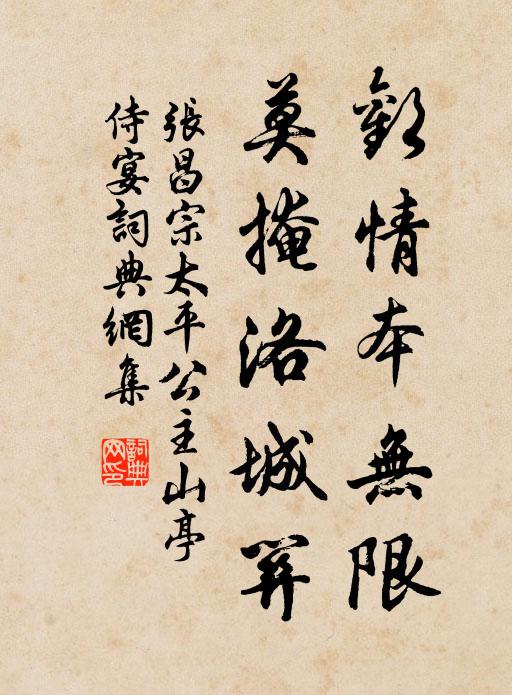 歡情本無限
莫掩洛城關
張昌宗太平公主山亭
侍宴詞典網集
詞典網印